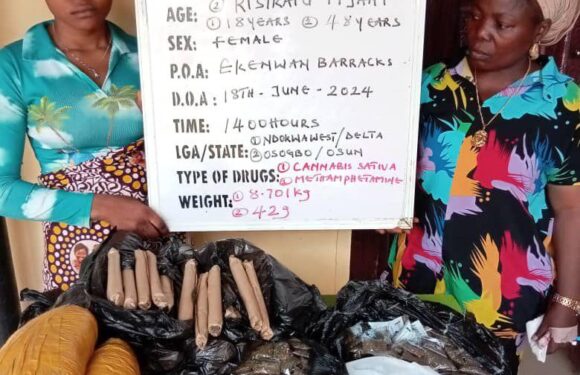 ② RISIKATU TIJANI
AGE: ① 18 YEARS ② 48 YEARS
SEX: FEMALE
P.O.A: EKENWAN BARRACKS
D.O.A: 18TH-JUNE-2024
TIME: 1400HOURS
① NDOKWAWEST/DELTA
LGA/STATE: ② OSOGBO/OSUN
TYPE OF DRUGS: ① CANNABIS SATIVA
② METHAMPHETAMINE
WEIGHT: ① 8.701Kg
② 42g